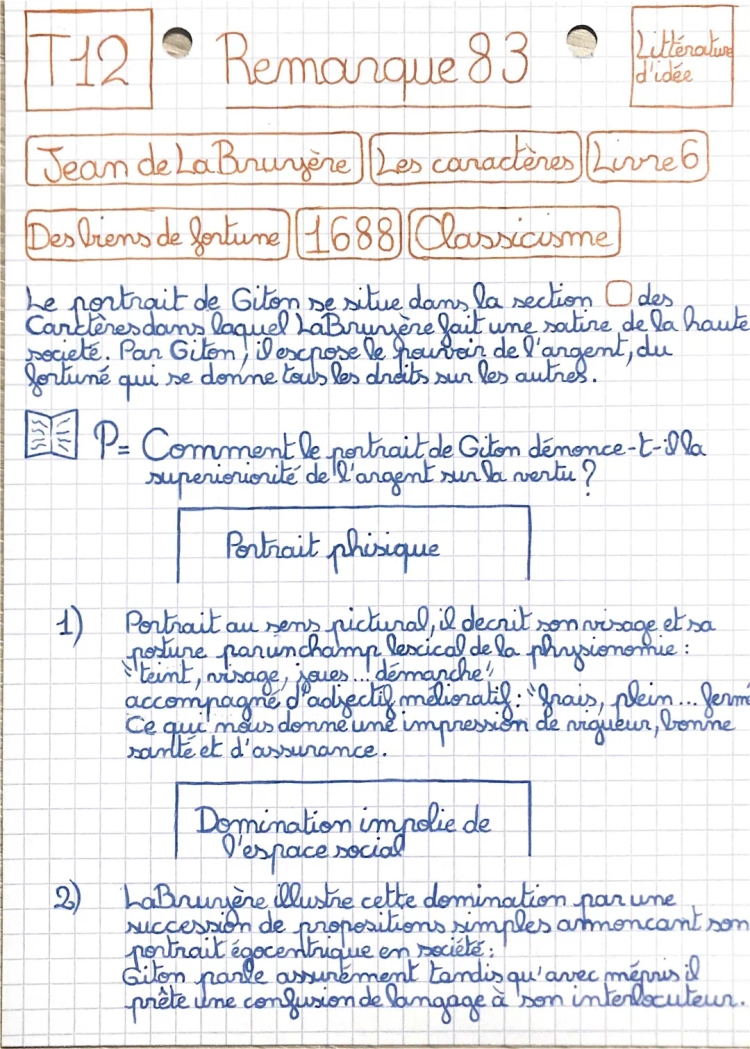 T12
Remarque 83
Littérature
d'idée
Jean de La Bruyère Les caractères Livre 6
Des biens de fortune 1688 Classicisme
Le portrait de Giton se situe dans la section des
Carctères dans laquel La Bruyère fait une satire de la haute
societé. Par Giton, il expose le pouvoir de l'argent, du
fortuné qui se donne tous les droits sur les autres.
P= Comment le portrait de Giton dénonce-t-il la
superioriorité de l'argent sur la vertu ?
Portrait phisique
1) Portrait au sens pictural, il decrit son visage et sa
posture par un champ lexical de la physionomie :
"teint, visage, joues... démarche"
accompagné d'adjectif mélioratif : "frais, plein... ferme
Ce qui nous donne une impression de vigueur, bonne
santé et d'assurance.
Domination impolie de
l'espace social
2) La Bruyère illustre cette domination par une
succession de propositions simples annoncant son
portrait égocentrique en société :
Giton parle assurément tandis qu'avec mépris il
prête une confusion de langage à son interlocuteur.